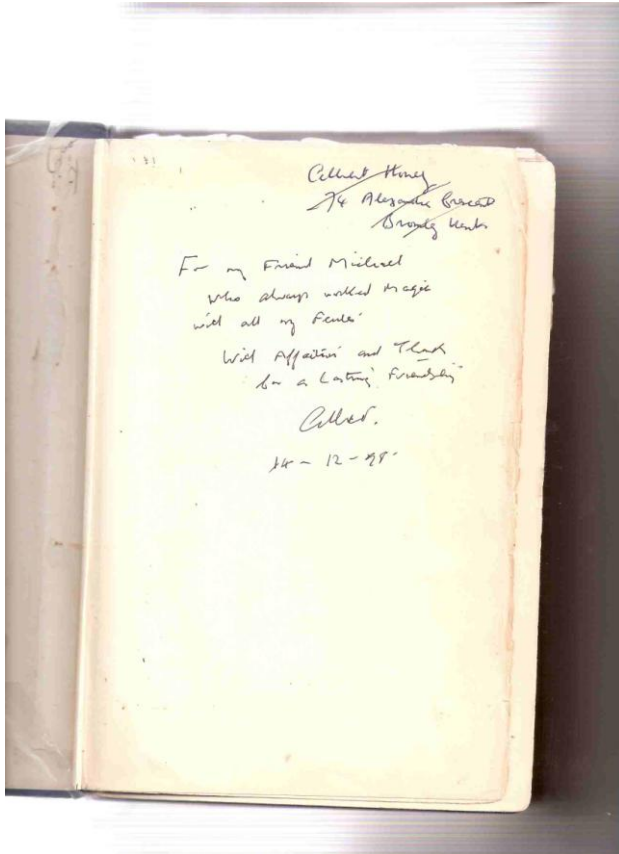 Honey
74 Alexandra Crescent
Bromley Kent
For my Friend Michael
who always worked Magic
with all my
With Affection and Thanks
for a Lasting Friendship
14 - 12 - 98.